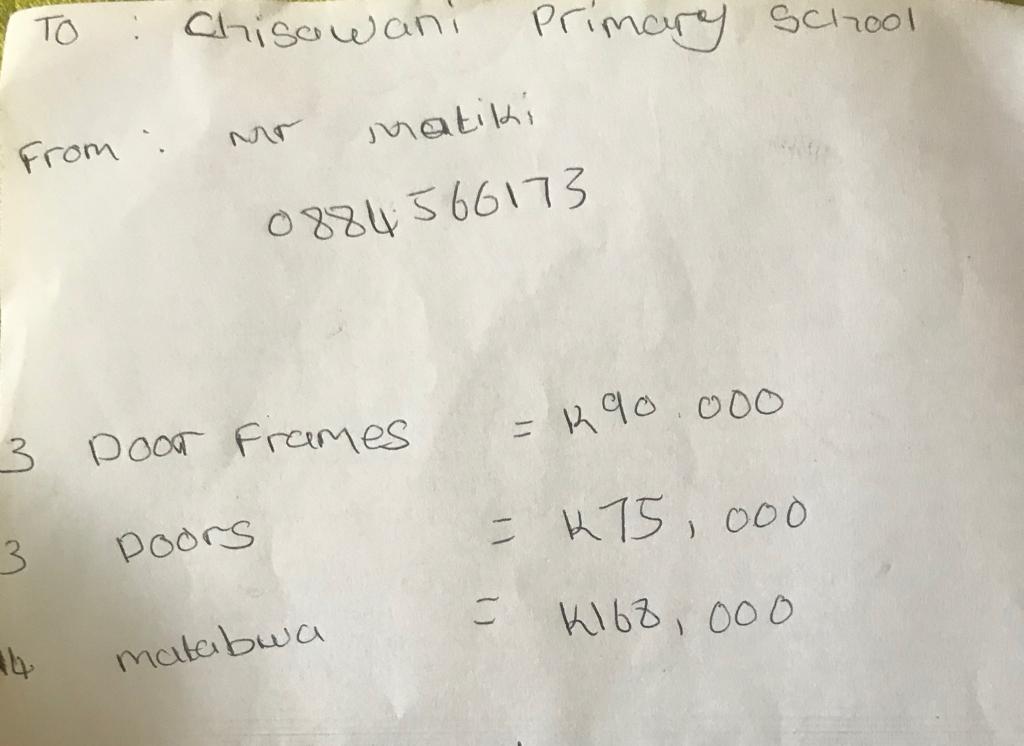 To : Chisawani Primary School
From : Mr Matiki
0884566173
3 Door Frames = K90.000
3 Doors = K75,000
14 matabwa = K168,000